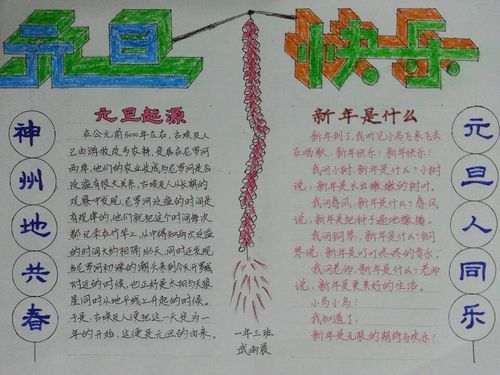 元旦快乐
神州地共春
元旦起源
在公元前5000年左右,古埃及人
已由游牧改为农耕,定居在尼罗河
两岸,他们的农业收成与尼罗河是否
泛滥有很大关系,古埃及人从长期的
观察中发现,尼罗河泛滥的时间是
有规律的,他们就把这个时间每次
都记录在竹竿上,从中得知两次泛滥
的时间大约相隔365天,同时还发现,
当尼罗河初涨的潮头来到今天开罗城
附近的时候,也正好是太阳与天狼
星同时从地平线上升起的时候。
于是,古埃及人便把这一天定为一
年的开始,这便是元旦的由来。
一年三班
武雨晨
新年是什么
新年到了,我听见小鸟飞来飞去
在唱歌,新年快乐!新年快乐!
我问小树,新年是什么?小树
说,新年是长出嫩嫩的树叶。
我问春风,新年是什么?春风
说,新年是把树于遍地
我问钢琴,新年是什么?钢琴
说,新年是叮叮咚咚的音乐。
我问老师,新年是什么?老师
说,新年是更美好的生活。
小鸟小鸟!
我知道了,
新年是无限的期待与快乐!
元旦人同乐